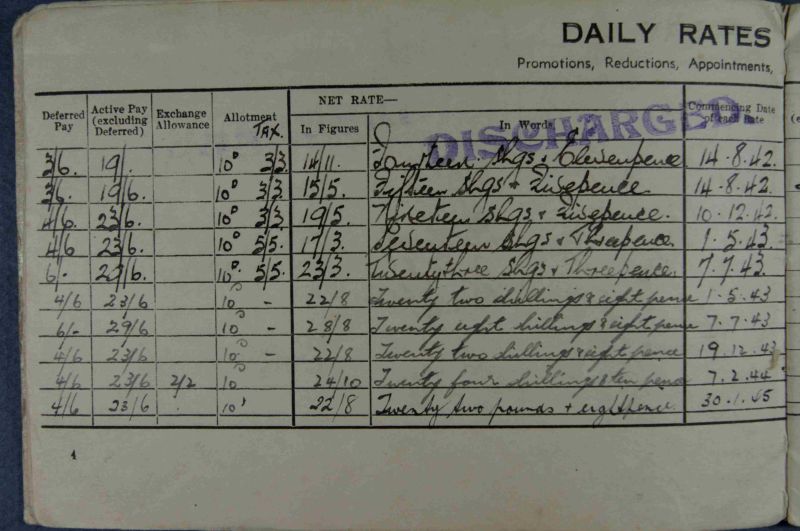 DAILY RATES
Promotions, Reductions, Appointments,
Deferred Pay Active Pay (excluding Deferred) Exchange Allowance Allotment TAX. NET RATE— In Figures In Words Commencing Date of each Rate
DISCHARGED
3/6. 19/. 10ᴰ 3/3 14/11. Fourteen Shgs & Elevenpence 14.8.42.
3/6. 19/6. 10ᴰ 3/3 15/5. Fifteen Shgs & Fivepence 14.8.42.
4/6. 23/6. 10ᴰ 3/3 19/5. Nineteen Shgs & Fivepence. 10.12.42.
4/6 23/6. 10ᴰ 5/5. 17/3. Seventeen Shgs & Threepence 1.5.43.
6/- 29/6. 10ᴰ 5/5. 23/3. Twentythree Shgs & Threepence. 7.7.43.
4/6 23/6 10ᴰ - 22/8 Twenty two shillings & eight pence 1.5.43
6/- 29/6 10ᴰ - 28/8 Twenty eight shillings & eight pence 7.7.43
4/6 23/6 10ᴰ - 22/8 Twenty two shillings & eight pence 19.12.43
4/6 23/6 2/2 10ᴰ 24/10 Twenty four shillings & ten pence 7.2.44
4/6 23/6 10ᴰ 22/8 Twenty two pounds + eightpence. 30.1.45
4